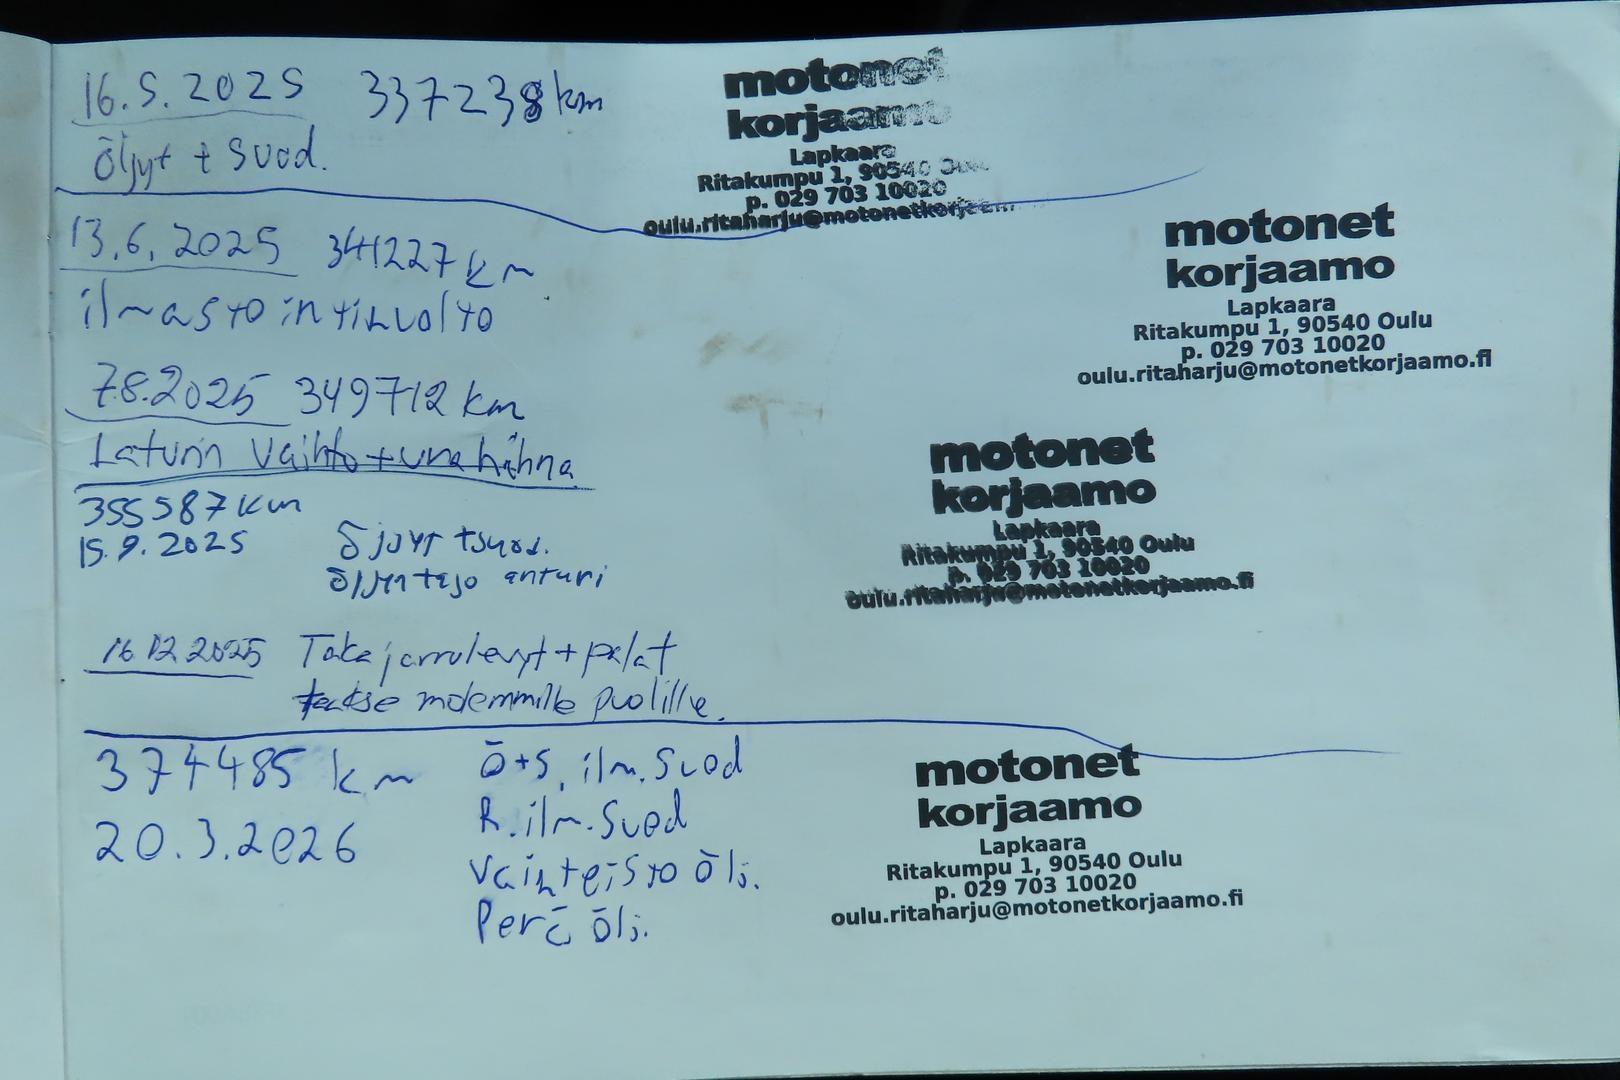 16.5.2025 337238 km
öljyt + suod.
motonet
korjaamo
Lapkaara
Ritakumpu 1, 90540 Oulu
p. 029 703 10020
oulu.ritaharju@motonetkorjaamo.fi
13.6.2025 341227 km
ilmastointihuolto
motonet
korjaamo
Lapkaara
Ritakumpu 1, 90540 Oulu
p. 029 703 10020
oulu.ritaharju@motonetkorjaamo.fi
7.8.2025 349712 km
Laturin vaihto + ura hihna
motonet
korjaamo
Lapkaara
Ritakumpu 1, 90540 Oulu
p. 029 703 10020
oulu.ritaharju@motonetkorjaamo.fi
355587 km
15.9.2025 Öjyt + suod.
öljyn taso anturi
16.12.2025 Taka jarrulevyt + palat
taakse molemmille puolille.
374485 km Ö+S, ilm. Suod
R.ilm. Suod
20.3.2026
Vaihteisto ölj.
Perä ölj.
motonet
korjaamo
Lapkaara
Ritakumpu 1, 90540 Oulu
p. 029 703 10020
oulu.ritaharju@motonetkorjaamo.fi